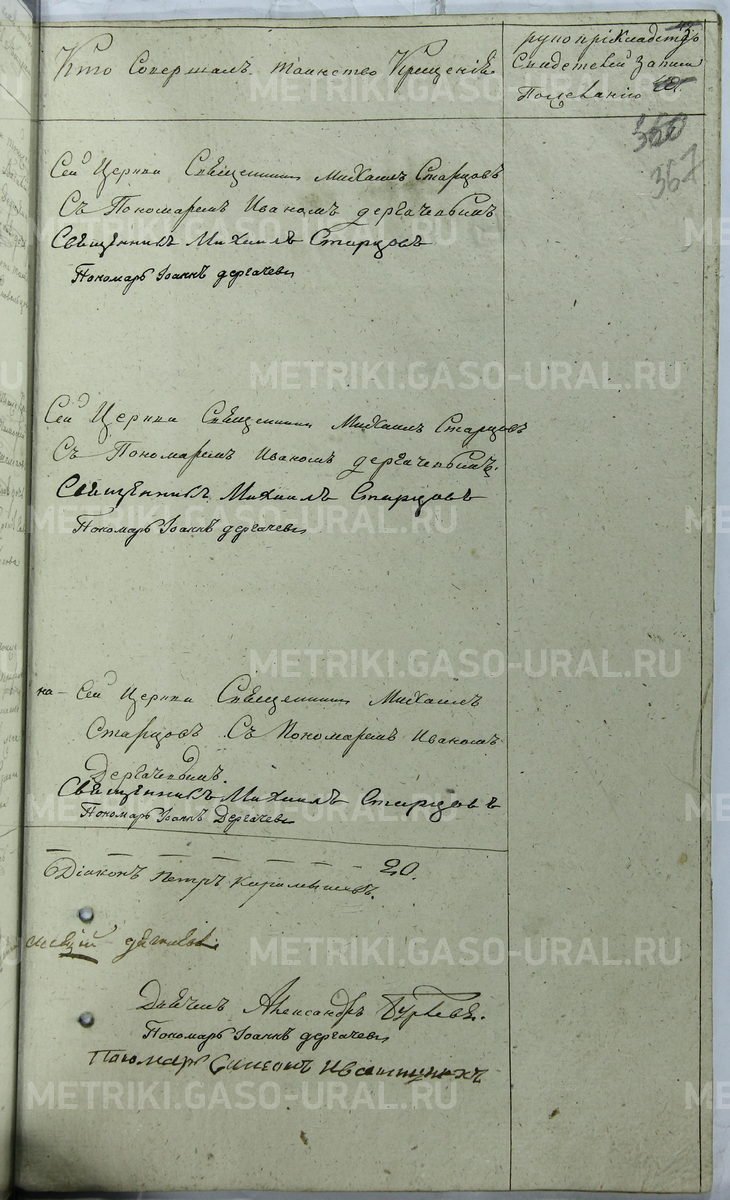 Кто Совершалъ таинство Крещенія
рукоприкладство
Свидетелей записи
По желанію
360
367
Сей Церкви Священникъ Михаилъ Старцовъ
Съ Пономаремъ Иваномъ дергачевымъ
Священникъ Михаилъ Старцовъ
Пономарь Іоаннъ дергачевъ
Сей Церкви Священникъ Михаилъ Старцовъ
Съ Пономаремъ Иваномъ дергачевымъ.
Священникъ Михаилъ Старцовъ
Пономарь Іоаннъ дергачевъ
на – Сей Церкви Священникъ Михаилъ
Старцовъ Съ Пономаремъ Иваномъ
Дергачевымъ.
Священникъ Михаилъ Старцовъ
Пономарь Іоаннъ Дергачевъ
20.
Діаконъ Петръ
Александръ
Пономарь Іоаннъ дергачевъ
Пономарь Симеонъ
METRIKI.GASO-URAL.RU